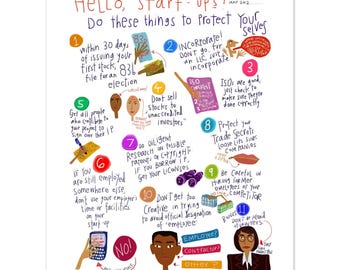 HELLO, START-UPS!
Do these things to Protect your
selves
1
within 30 days
of issuing your
first stock,
file for an 83b
election
2
INCORPORATE!
Don't go for
an LLC, just
incorporate
3
are good,
just checks to
make sure they're
done correctly
4
Don't sell
stocks to
unaccredited
investors"
5
Get all people
who contribute to
your project to
sign over their I.P.
6
IF YOU
are still employed
somewhere else,
don't use your employer's
time or facilities
on your
start up
7
Do Diligent
Research on Possible
Patents & Copyright
IF you Borrow I.P.
Get your Licenses
8
Protect your
Trade Secrets
Loose Lips Sink
Companies
9
Be careful in
hiring former
employees of your
competitor
10
Don't get too
Creative in trying
to avoid official designation
of employee
11
NO!
EMPLOYEE?
CONTRACTOR?
OTHER?